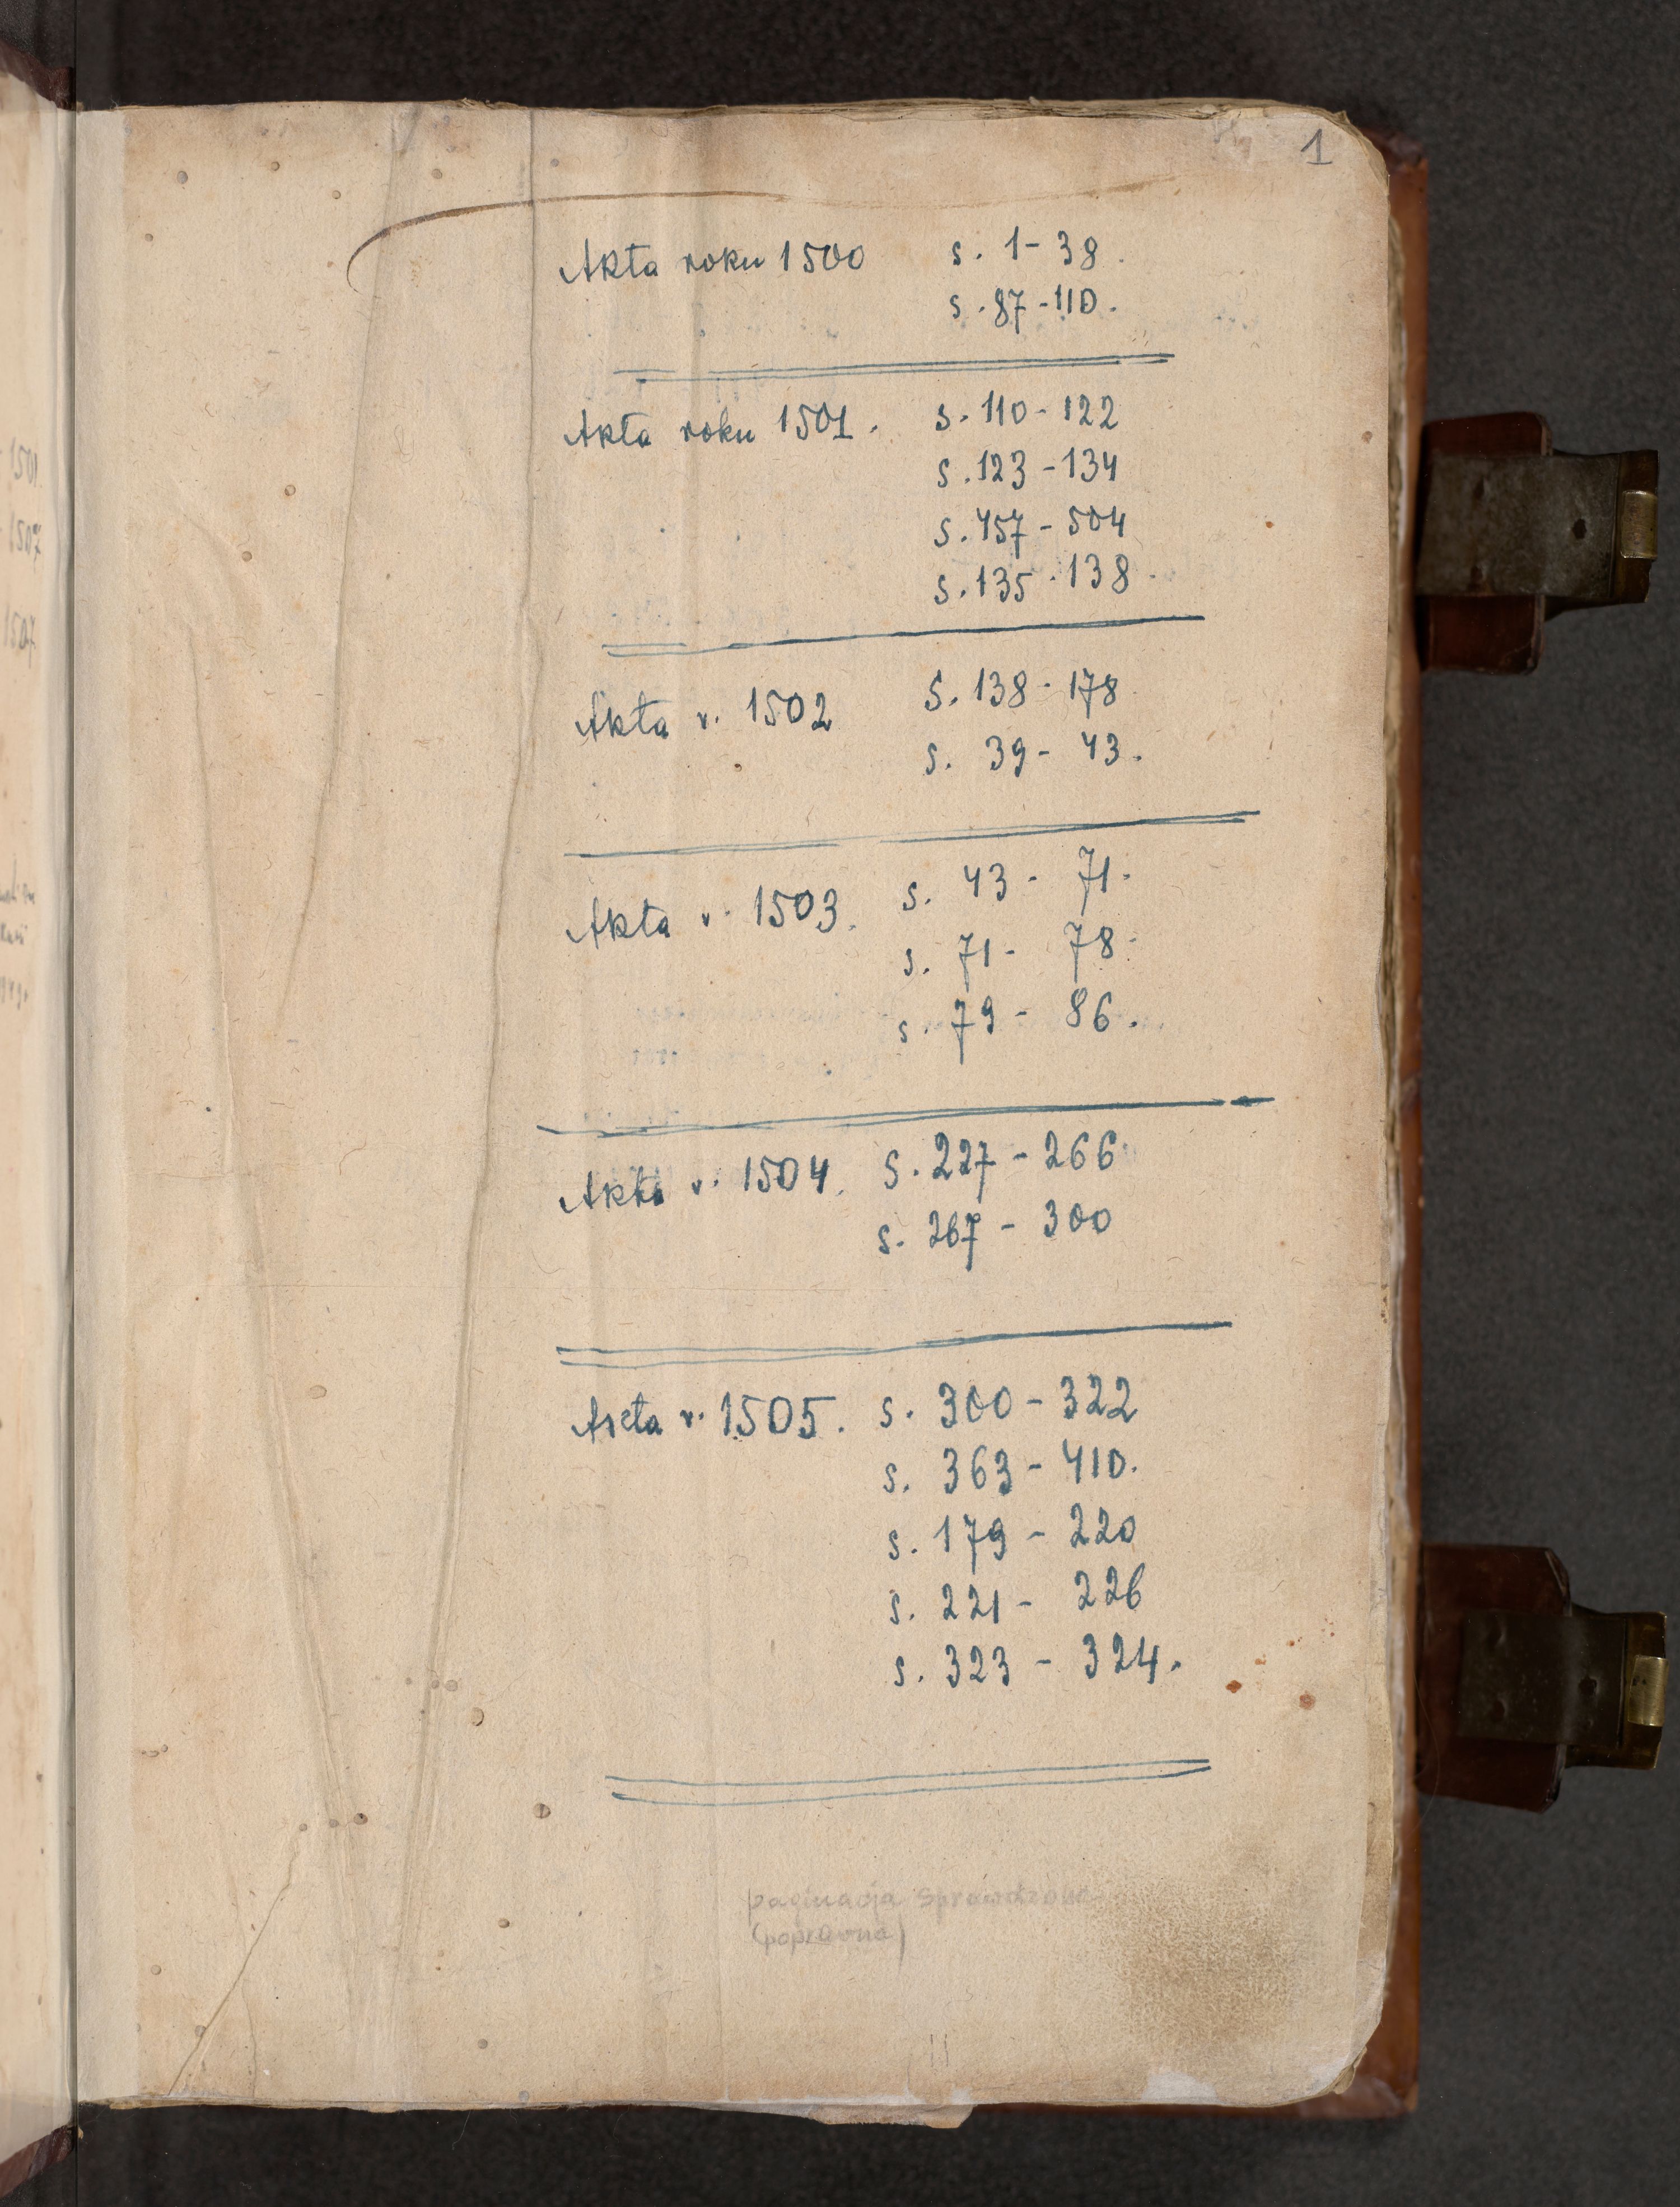 1
Akta roku 1500 s. 1 - 38.
s. 87 - 110.
Akta roku 1501. s. 110 - 122
s. 123 - 134
s. 457 - 504
s. 135 - 138.
Akta r. 1502 S. 138 - 178
s. 39 - 43.
Akta r. 1503. s. 43 - 71.
s. 71 - 78.
s. 79 - 86.
Akta r. 1504. S. 227 - 266
s. 267 - 300
Akta r. 1505. s. 300 - 322
s. 363 - 410.
s. 179 - 220
s. 221 - 226
s. 323 - 324.
paginacja sprawdzona
(poprawna)